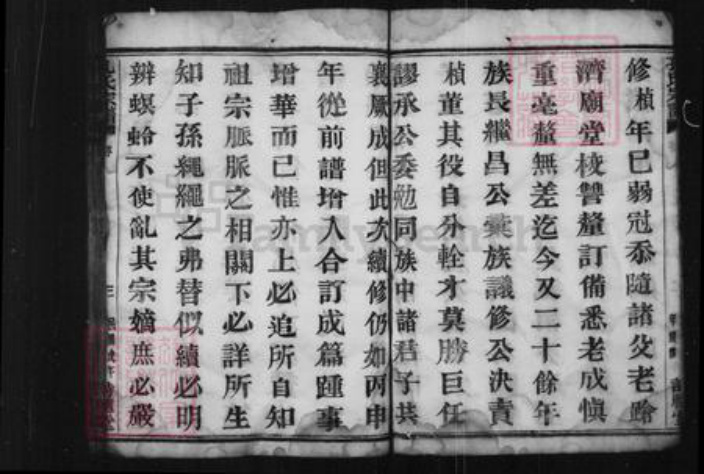 修楨年已弱冠忝隨諸父老蹌
濟廟堂校讐釐訂備悉老成愼
重毫釐無差迄今又二十餘年
族長繼昌公彙族議修公决責
楨董其役自分輇才莫勝巨任
謬承公委勉同族中諸君子共
襄厥成但此次續修仍如丙申
年從前譜增入合訂成篇踵事
增華而已惟亦上必追所自知
祖宗脈脈之相關下必詳所生
知子孫繩繩之弗替似續必明
辨螟蛉不使亂其宗嫡庶必嚴